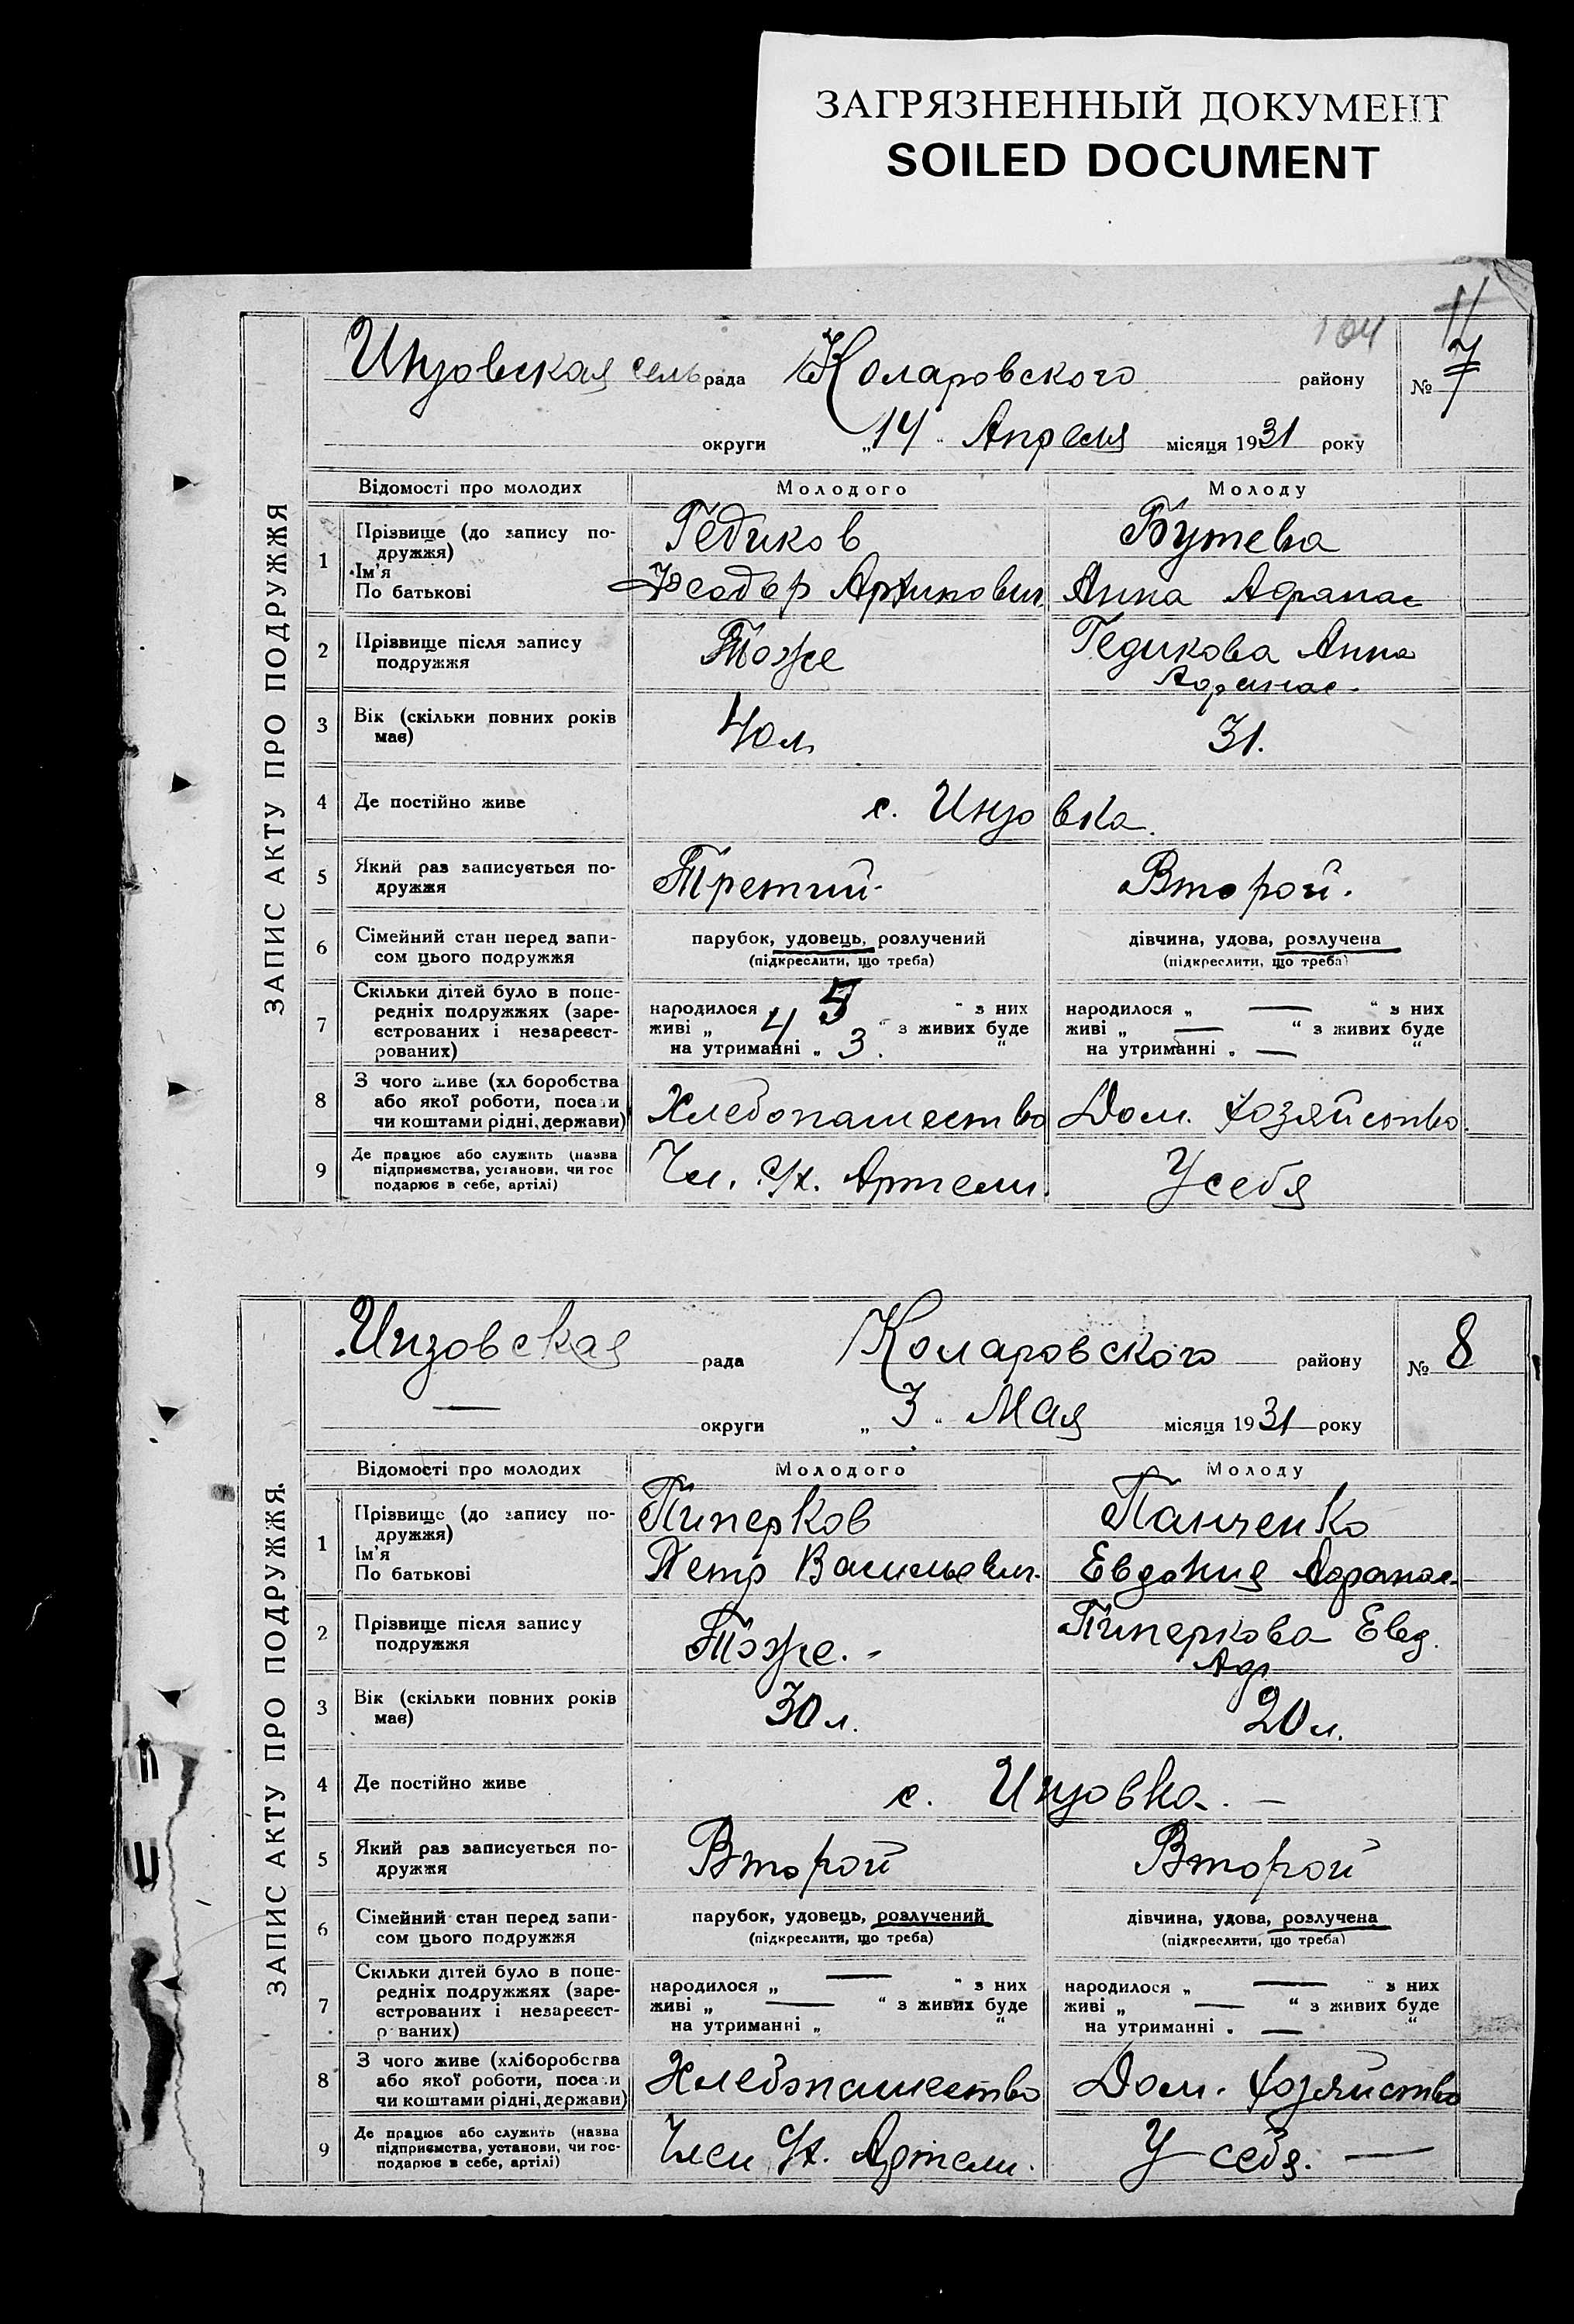 ЗАГРЯЗНЕННЫЙ ДОКУМЕНТ
SOILED DOCUMENT
104
11
ЗАПИС АКТУ ПРО ПОДРУЖЖЯ
Инзовская сельрада Коларовского району № 7
округи „14“ Апреля місяця 1931 року
Відомості про молодих Молодого Молоду
1 Прізвище (до запису по-
дружжя) Гедиков Бутева
Ім'я
По батькові Феодър Архипович Анна Афанас
2 Прізвище після запису
подружжя Тоже Гедикова Анна
Афанас.
3 Вік (скільки повних років
має) 40 л 31.
4 Де постійно живе с. Инзовка.
5 Який раз записується по-
дружжя Третий Второй.
6 Сімейний стан перед запи-
сом цього подружжя
парубок, удовець, розлучений дівчина, удова, розлучена
(підкреслити, що треба) (підкреслити, що треба)
7 Скільки дітей було в попе-
редніх подружжях (заре-
єстрованих і незареєст-
рованих)
народилося 5 “ з них народилося „ — “ з них
живі „ 4 “ з живих буде живі „ — “ з живих буде
на утриманні „ 3. “ на утриманні „ — “
8 З чого живе (хл боробства
або якої роботи, посади
чи коштами рідні, держави) Хлебопашество Дом. хозяйство.
9 Де працює або служить (назва
підприємства, установи, чи гос
подарює в себе, артілі) Чл. с/х. Артели. У себя
ЗАПИС АКТУ ПРО ПОДРУЖЖЯ
Инзовская рада Коларовского району № 8
— округи „3“ Мая місяця 1931 року
Відомості про молодих Молодого Молоду
1 Прізвище (до запису по-
дружжя) Пиперков Панченко
Ім'я
По батькові Петр Васильевич. Евдокия Афанас.
2 Прізвище після запису
подружжя Тоже. Пиперкова Евд.
Аф
3 Вік (скільки повних років
має) 30 л. 20 л.
4 Де постійно живе с. Инзовка. —
5 Який раз записується по-
дружжя Второй Второй
6 Сімейний стан перед запи-
сом цього подружжя
парубок, удовець, розлучений дівчина, удова, розлучена
(підкреслити, що треба) (підкреслити, що треба)
7 Скільки дітей було в попе-
редніх подружжях (заре-
єстрованих і незареєст-
р ваних)
народилося „ — “ з них народилося „ — “ з них
живі „ — “ з живих буде живі „ — “ з живих буде
на утриманні „ “ на утриманні „ — “
8 З чого живе (хліборобства
або якої роботи, посади
чи коштами рідні, держави) Хлебопашество Дом. хозяйство
9 Де працює або служить (назва
підприємства, установи, чи гос-
подарює в себе, артілі) Член с/х. Артели. У себя. —